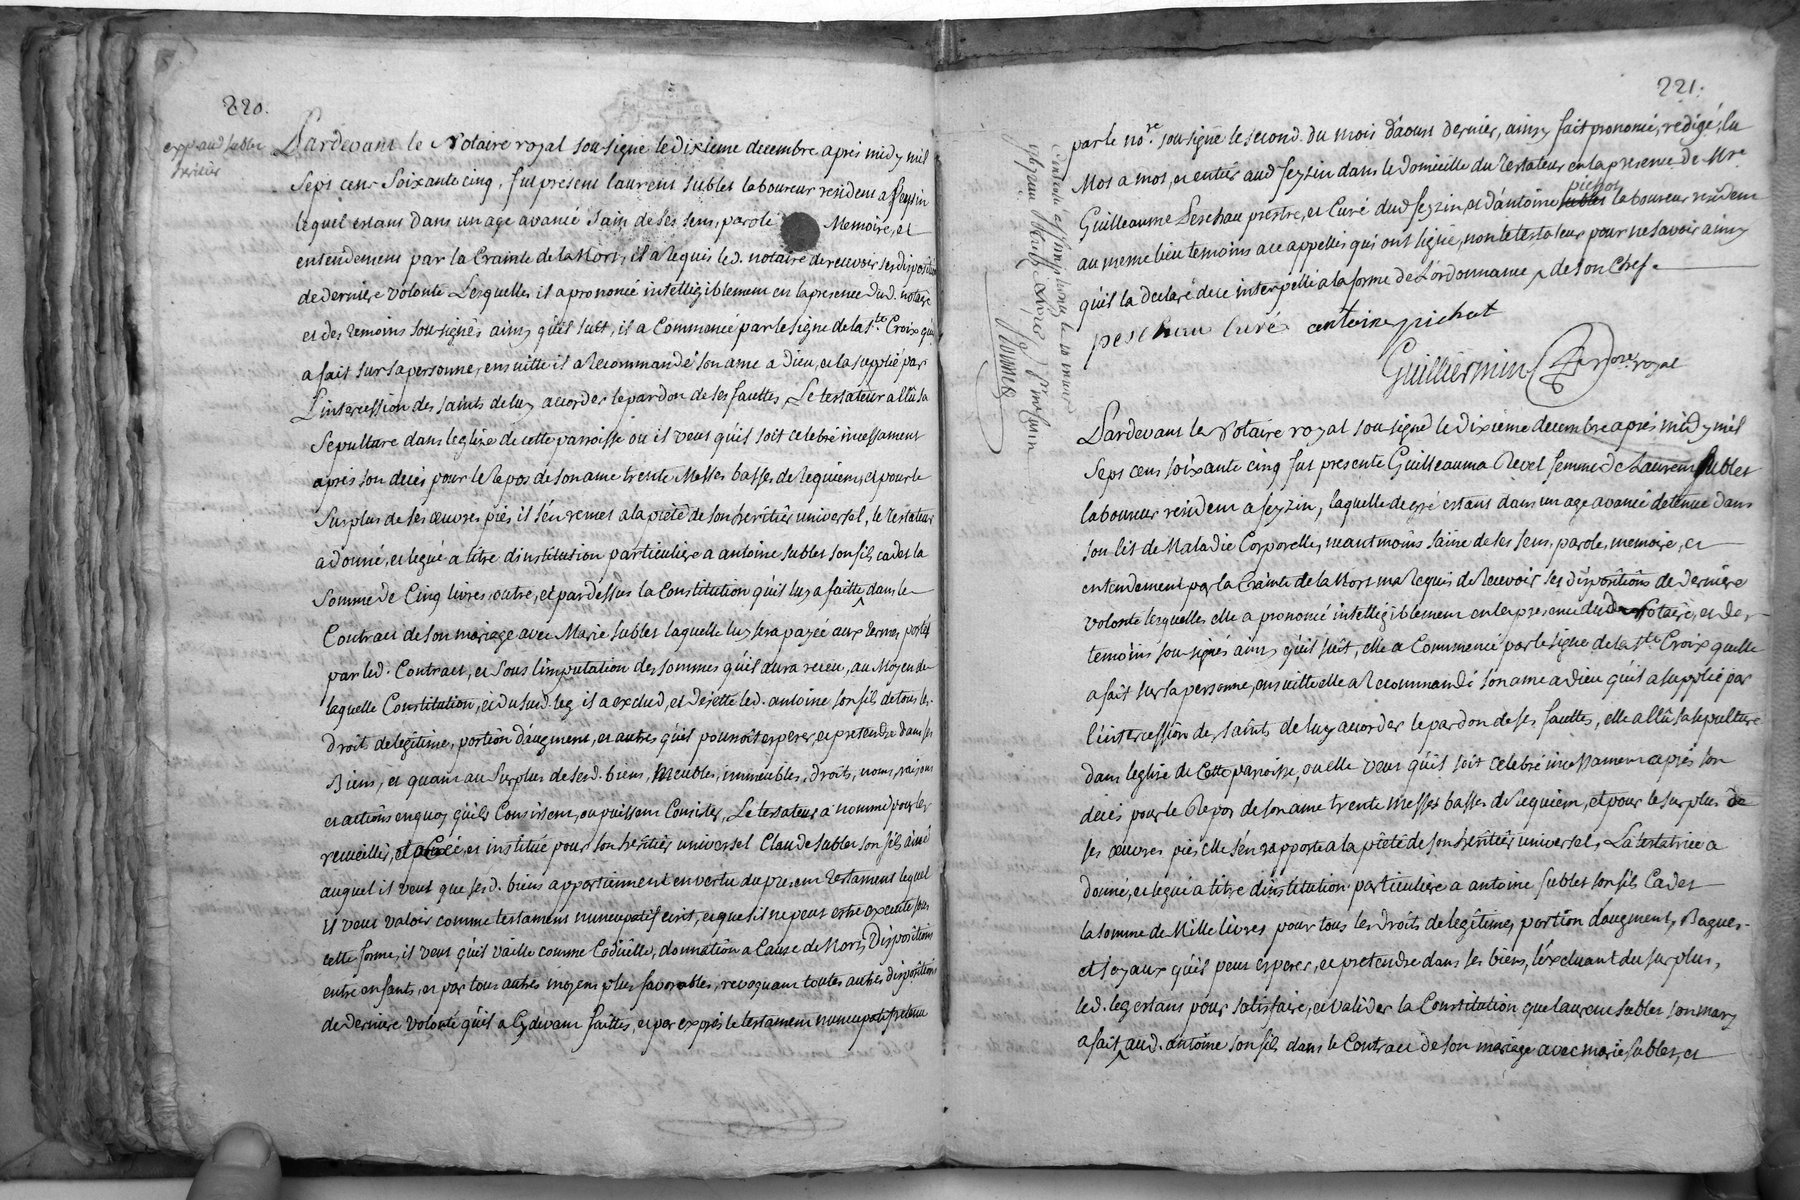 220.
exp. aud sublet
heritier
Pardevant le Notaire royal soussigné le dixieme decembre apres midy mil
Sept cens soixante cinq, fut present laurent sublet laboureur resident a feyzin
lequel estant dans un age avancé sain de ses sens, parole Memoire, et
entendement par la Crainte de la Mort, il a Requis led. notaire de recevoir ses disposition
de derniere volonté Lesquelles il a prononcé intelligiblement en la presence dud. notaire
et des temoins soussignés ainsy qu'il suit, il a Commencé par le signe de la Ste. Croix qu'il
a fait sur sa personne, ensuitte il a Recommandé son ame a Dieu, et la supplié par
L'intercession des saints de luy accorder le pardon de ses fauttes, Le testateur a ellû sa
sepulture dans leglize de cette parroisse ou il veut qu'il soit celebré incessament
après son deces pour le Repos de son ame trente Messes basses de Requiem, et pour le
surplus de ses œuvres pies il s'en remet a la pieté de son heritier universel, le testateur
a donné, et legué a titre d'institution particuliere a antoine sublet son fils cadet la
somme de Cinq livres outre, et pardessus la Constitution qu'il luy a faitte dans le
Contract de son mariage avec Marie sublet laquelle luy sera payée aux termes portés
par led. Contract, et sous l'imputation des sommes qu'il aura receu, au Moyen de
laquelle Constitution, et du susd. leg il a exclud, et dejetté led. antoine son fils de tous les
droit de legitime, portion d'augment, et autres qu'il pourroit esperer, et pretendre dans ses
Biens, et quant au surplus de sesd. biens, Meubles, immeubles, droits, noms, raisons
et actions en quoy qu'ils Consistent, ou puissent Consister, Le testateur a nommé pour les
recueillir, et institué pour son heritier universel Claude sublet son fils ainé
auquel il veut que sesd. biens appartiennent en vertu du present testament lequel
il veut valoir comme testament nuncupatif ecrit, et que s'il ne peut estre executé sous
cette forme, il veut qu'il vaille comme Codicille, donnation a Cause de Mort, Dispositions
entre enfants, et par tous autres moyens plus favorables, revoquant toutes autres dispositions
de derniere volonté qu'il a Cydevant faittes, et par exprés le testament nuncupatif retenu
221.
par le nore. soussigné le second du mois d'aoust dernier, ainsy fait prononcé, redigé, lu
Mot a mot, et entier aud feyzin dans le domicille du Testateur en la presence de Mre
Guilleaume Peschau prestre, et Curé dud feyzin, et d'antoine pichot laboureur resident
au meme lieu temoins a ce appellés qui ont signé, non le testateur pour ne savoir ainsy
qu'il la declaré de ce interpellé a la forme de L'ordonnance, de son Chef.
peschau Curé antoine pichot
Guilliermin nore. royal
Pardevant le Notaire royal soussigné le dixieme decembre apres midy mil
Sept cens soixante cinq fut presente Guilleauma Revel femme de Laurent sublet
laboureur resident a feyzin, laquelle de gré estant dans un age avancé detenue dans
son lit de Maladie Corporelle, neantmoins saine de ses sens, parole, memoire, et
entendement par la Crainte de la Mort ma Requis de Recevoir ses dispositions de derniere
volonté lesquelles elle a prononcé intelligiblement en la presence dud Notaire, et de
temoins soussignés ainsy qu'il suit, elle a Commencé par le signe de la Ste. Croix quelle
a fait sur sa personne, ensuitte elle a Recommandé son ame a dieu qu'il a supplié par
l'intercession des saints de luy accorder le pardon de ses fauttes, elle a ellû sa sepulture
dans leglize de Cette parroisse, ou elle veut qu'il soit celebré incessament apres son
deces pour le Repos de son ame trente messes basses de Requiem, et pour le surplus de
ses œuvres pies elle s'en rapporte a la pieté de son heritier universel, La testatrice a
donné, et legué a titre d'institution particuliere a antoine sublet son fils Cadet
la somme de Mille livres pour tous les droits de legitime, portion d'augment, Bagues
et joyaux qu'il peut esperer, et pretendre dans ses biens, l'excluant du surplus,
led. leg estant pour satisfaire, et valider la Constitution que laurent sublet son mary
a fait aud. antoine son fils dans le Contract de son mariage avec marie sublet, et